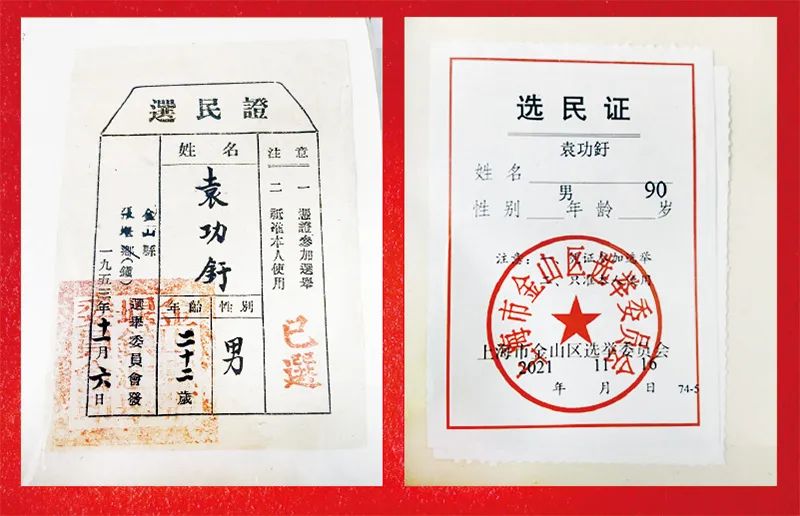 選民證
注意
一 憑證參加選舉
二 祇准本人使用
已選
姓名
袁功釪
性別
男
年齡
二十二歲
金山縣
張堰鄉(鎮)
選舉委員會發
一九五三年十一月六日
选民证
袁功釪
姓名
男 90
性别 年龄 岁
注意:一、凭证参加选举
只准本人使用
上海市金山区选举委员会
上海市金山区选举委员会
2021 11 16
年 月 日 74-5